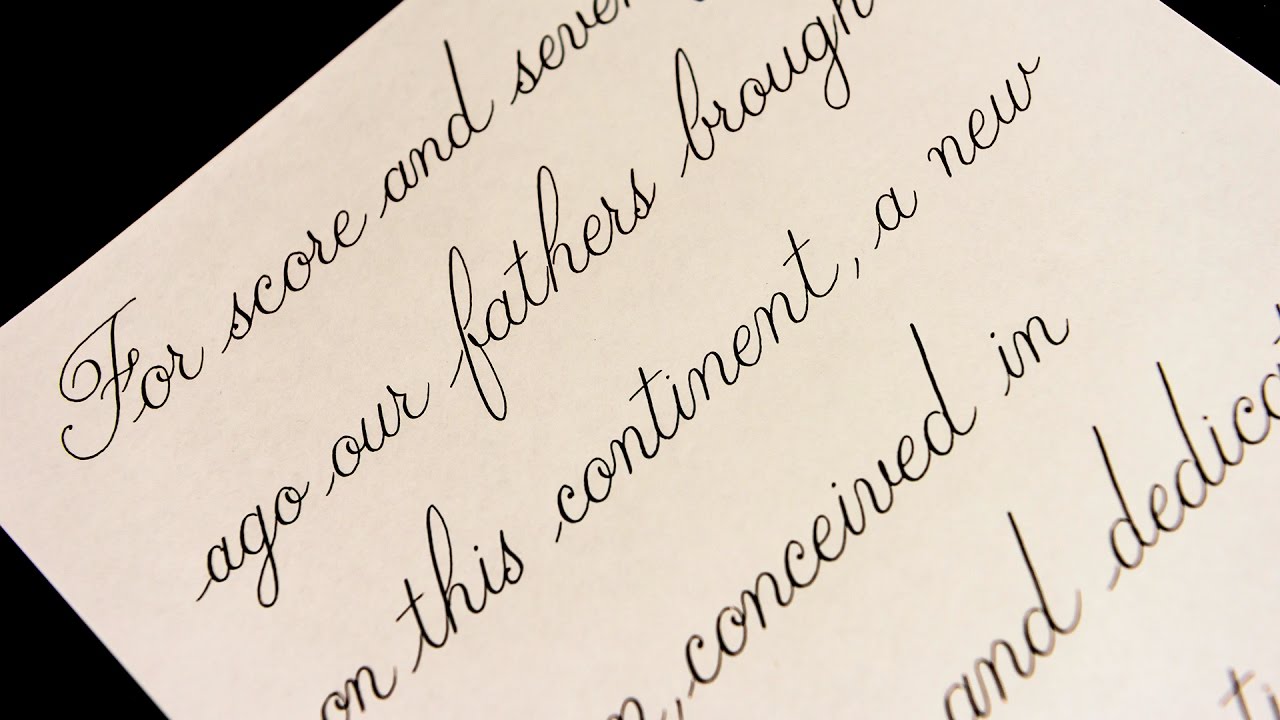 For score and seven
ago our fathers brough
on this continent, a new
, conceived in
and dedica